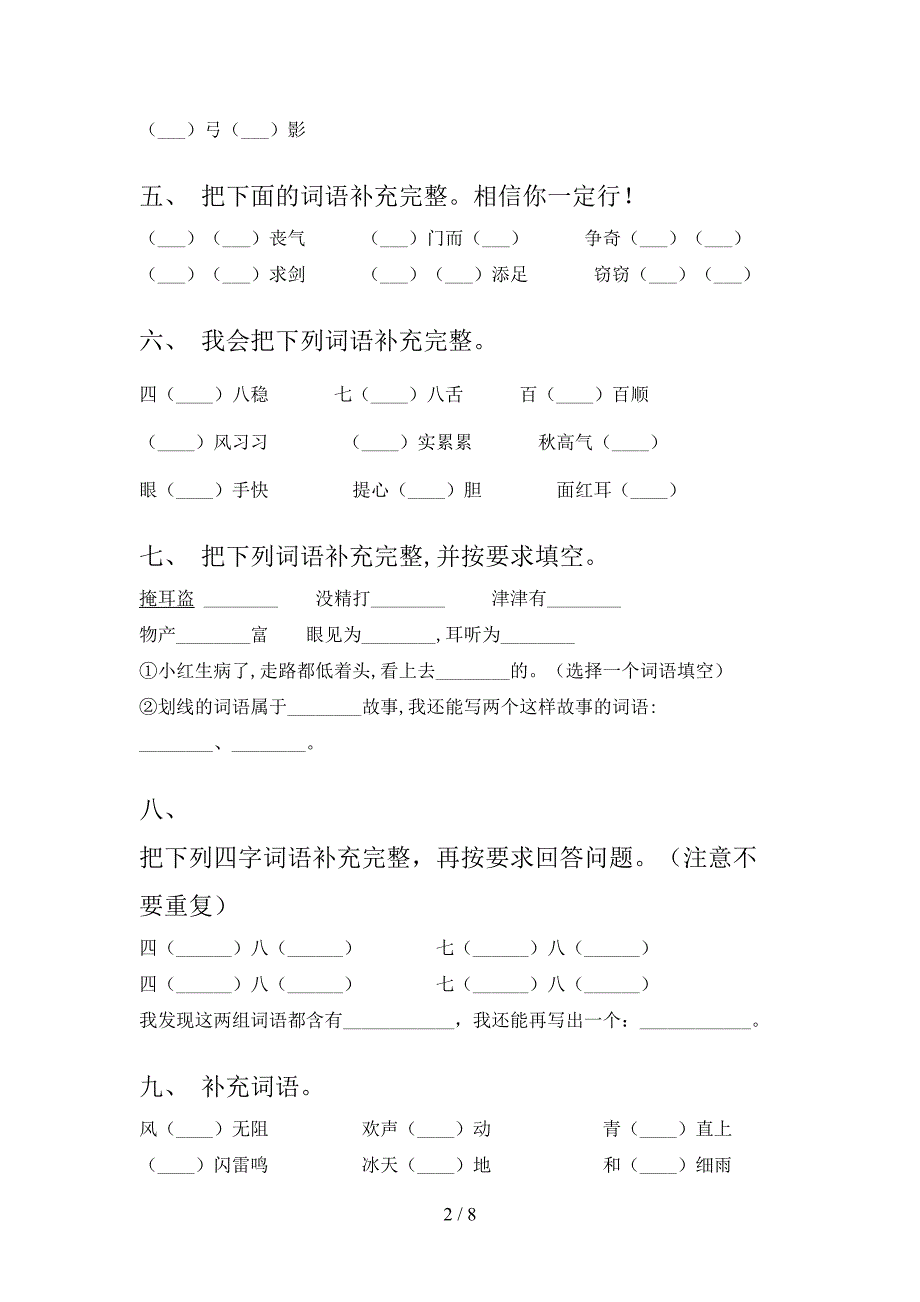 （___）弓（___）影
五、 把下面的词语补充完整。相信你一定行！
（___）（___）丧气 （___）门而（___） 争奇（___）（___）
（___）（___）求剑 （___）（___）添足 窃窃（___）（___）
六、 我会把下列词语补充完整。
四（____）八稳 七（____）八舌 百（____）百顺
（____）风习习 （____）实累累 秋高气（____）
眼（____）手快 提心（____）胆 面红耳（____）
七、 把下列词语补充完整,并按要求填空。
掩耳盗 ________ 没精打________ 津津有________
物产________富 眼见为________,耳听为________
①小红生病了,走路都低着头,看上去________的。（选择一个词语填空）
②划线的词语属于________故事,我还能写两个这样故事的词语:
________、________。
八、
把下列四字词语补充完整，再按要求回答问题。（注意不
要重复）
四（______）八（______） 七（______）八（______）
四（______）八（______） 七（______）八（______）
我发现这两组词语都含有____________，我还能再写出一个：____________。
九、 补充词语。
风（____）无阻 欢声（____）动 青（____）直上
（____）闪雷鸣 冰天（____）地 和（____）细雨
2 / 8